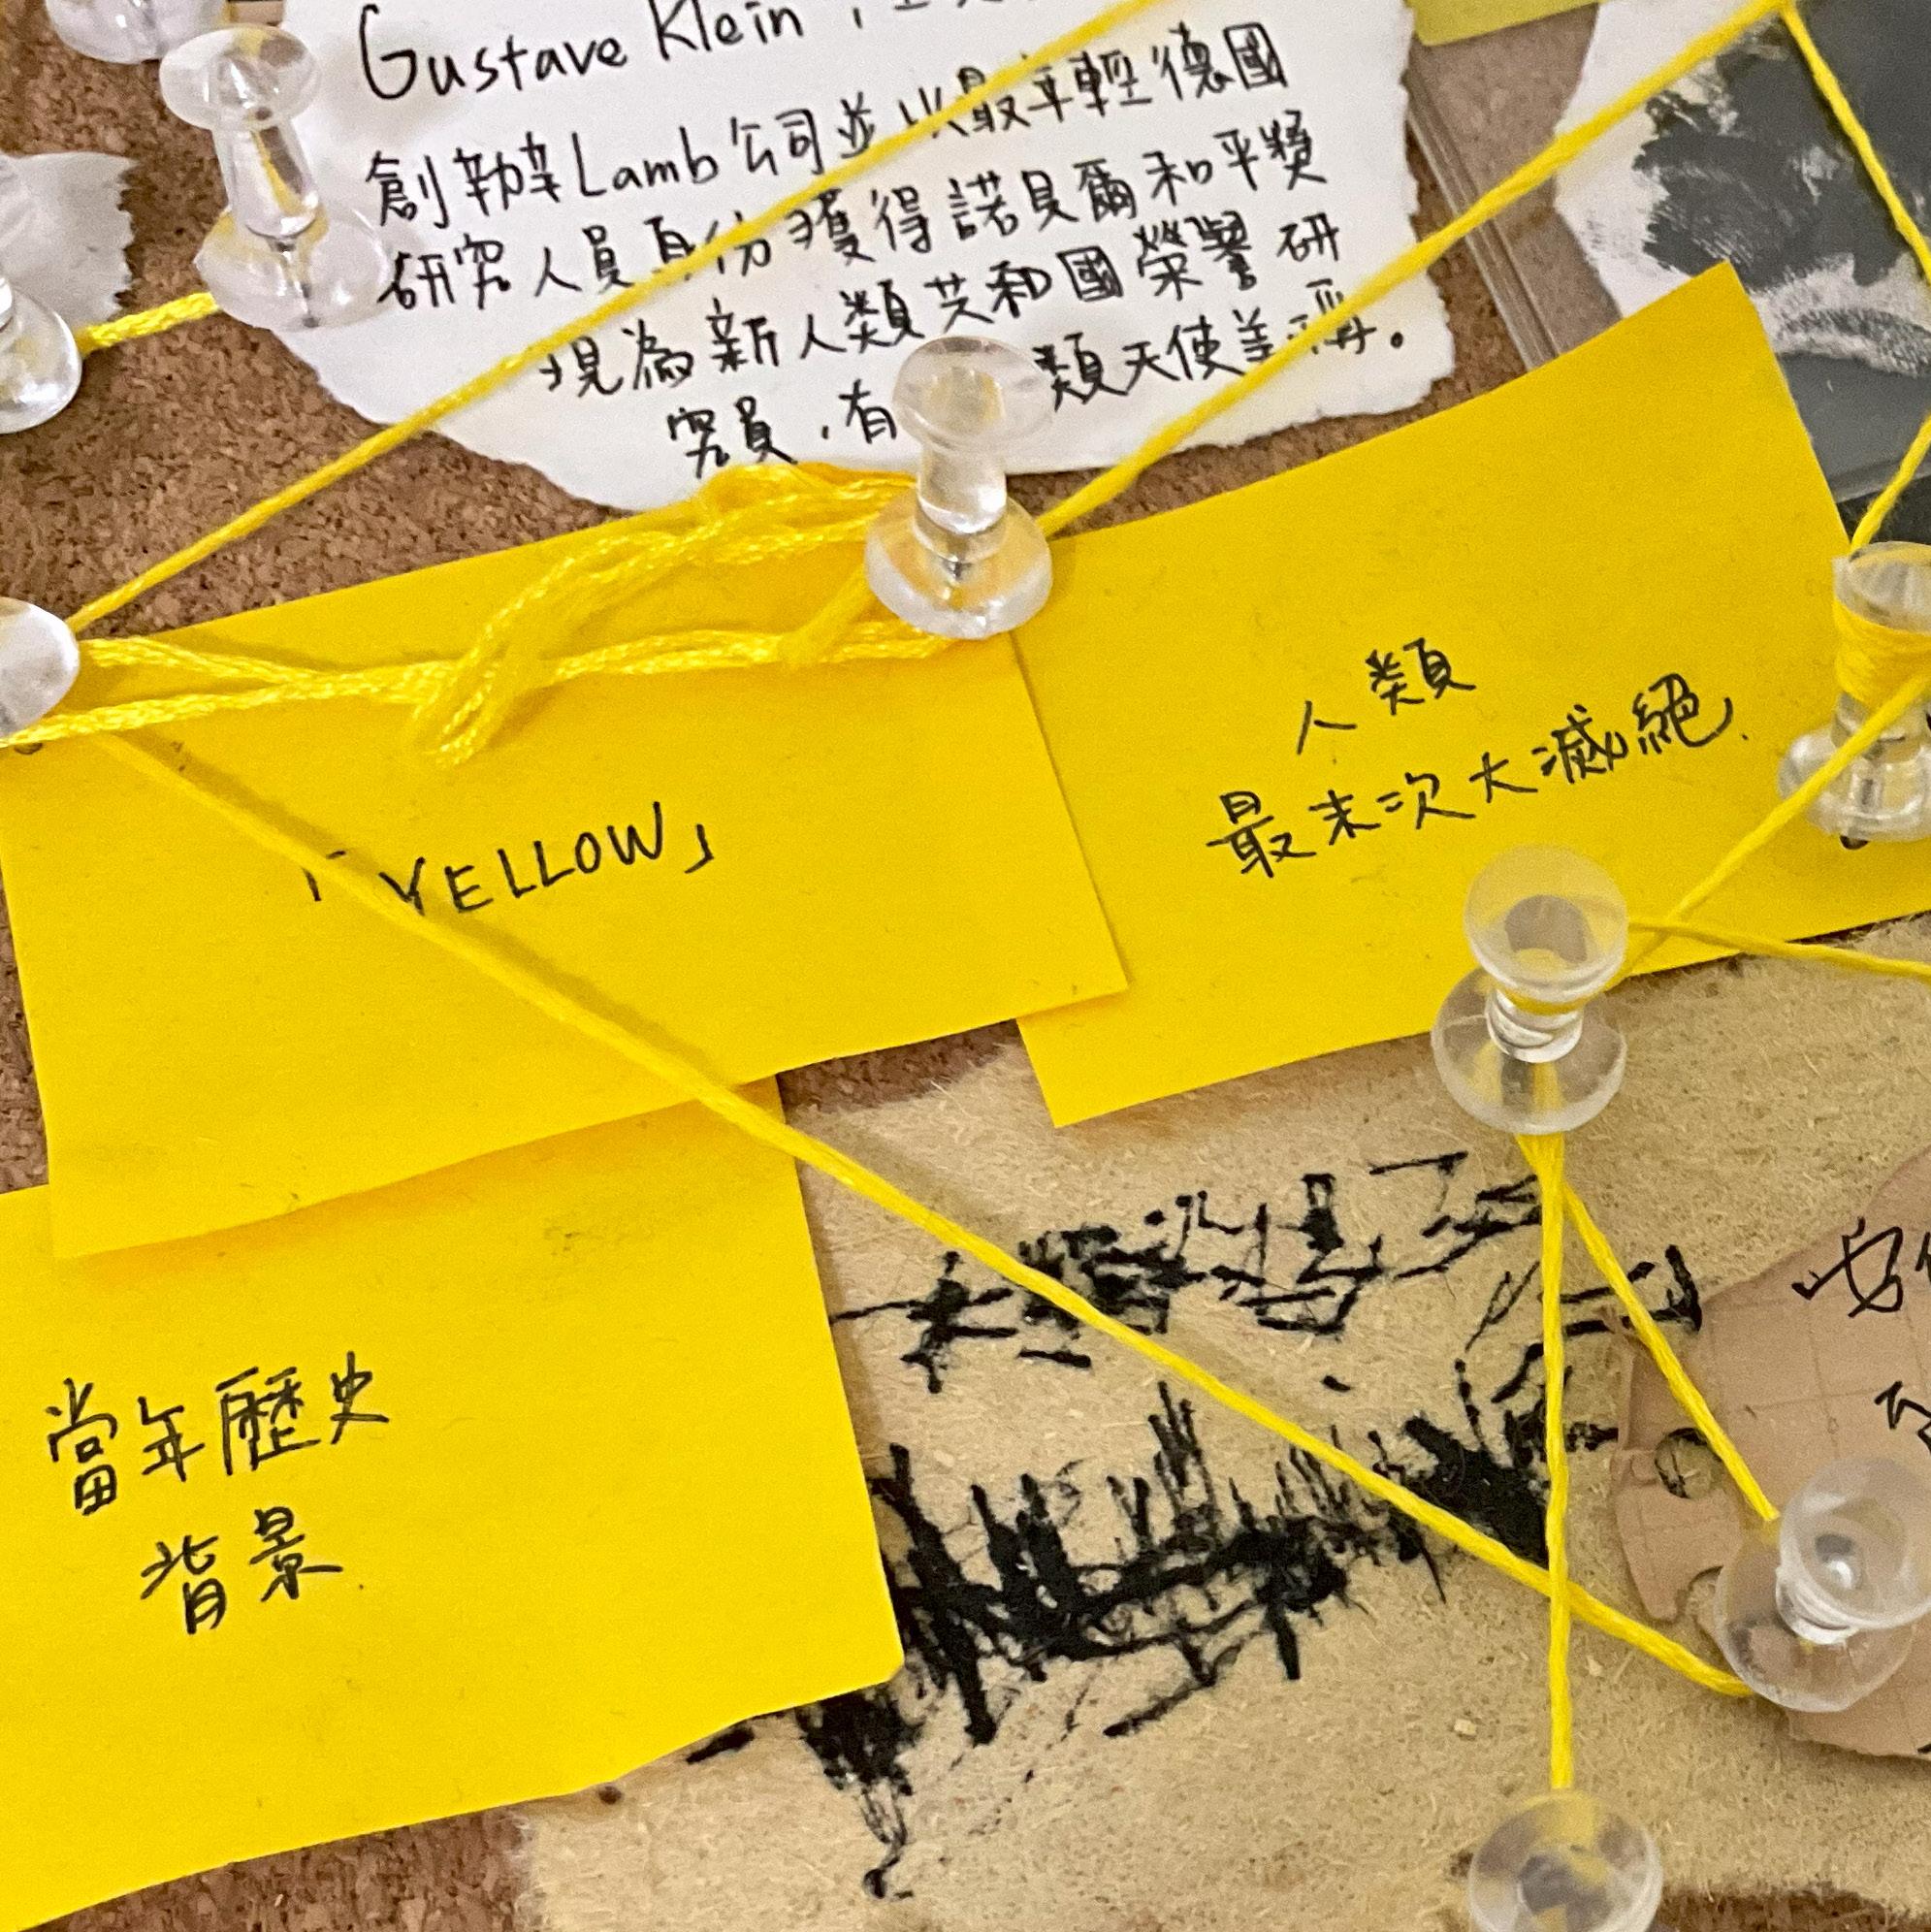 Gustave Klein
創辦Lamb公司並以最年輕德國
研究人員身份獲得諾貝爾和平獎
現為新人類共和國榮譽研
究員,有 類天使美 。
「YELLOW」
人類
最末次大滅絕
當年歷史
背景